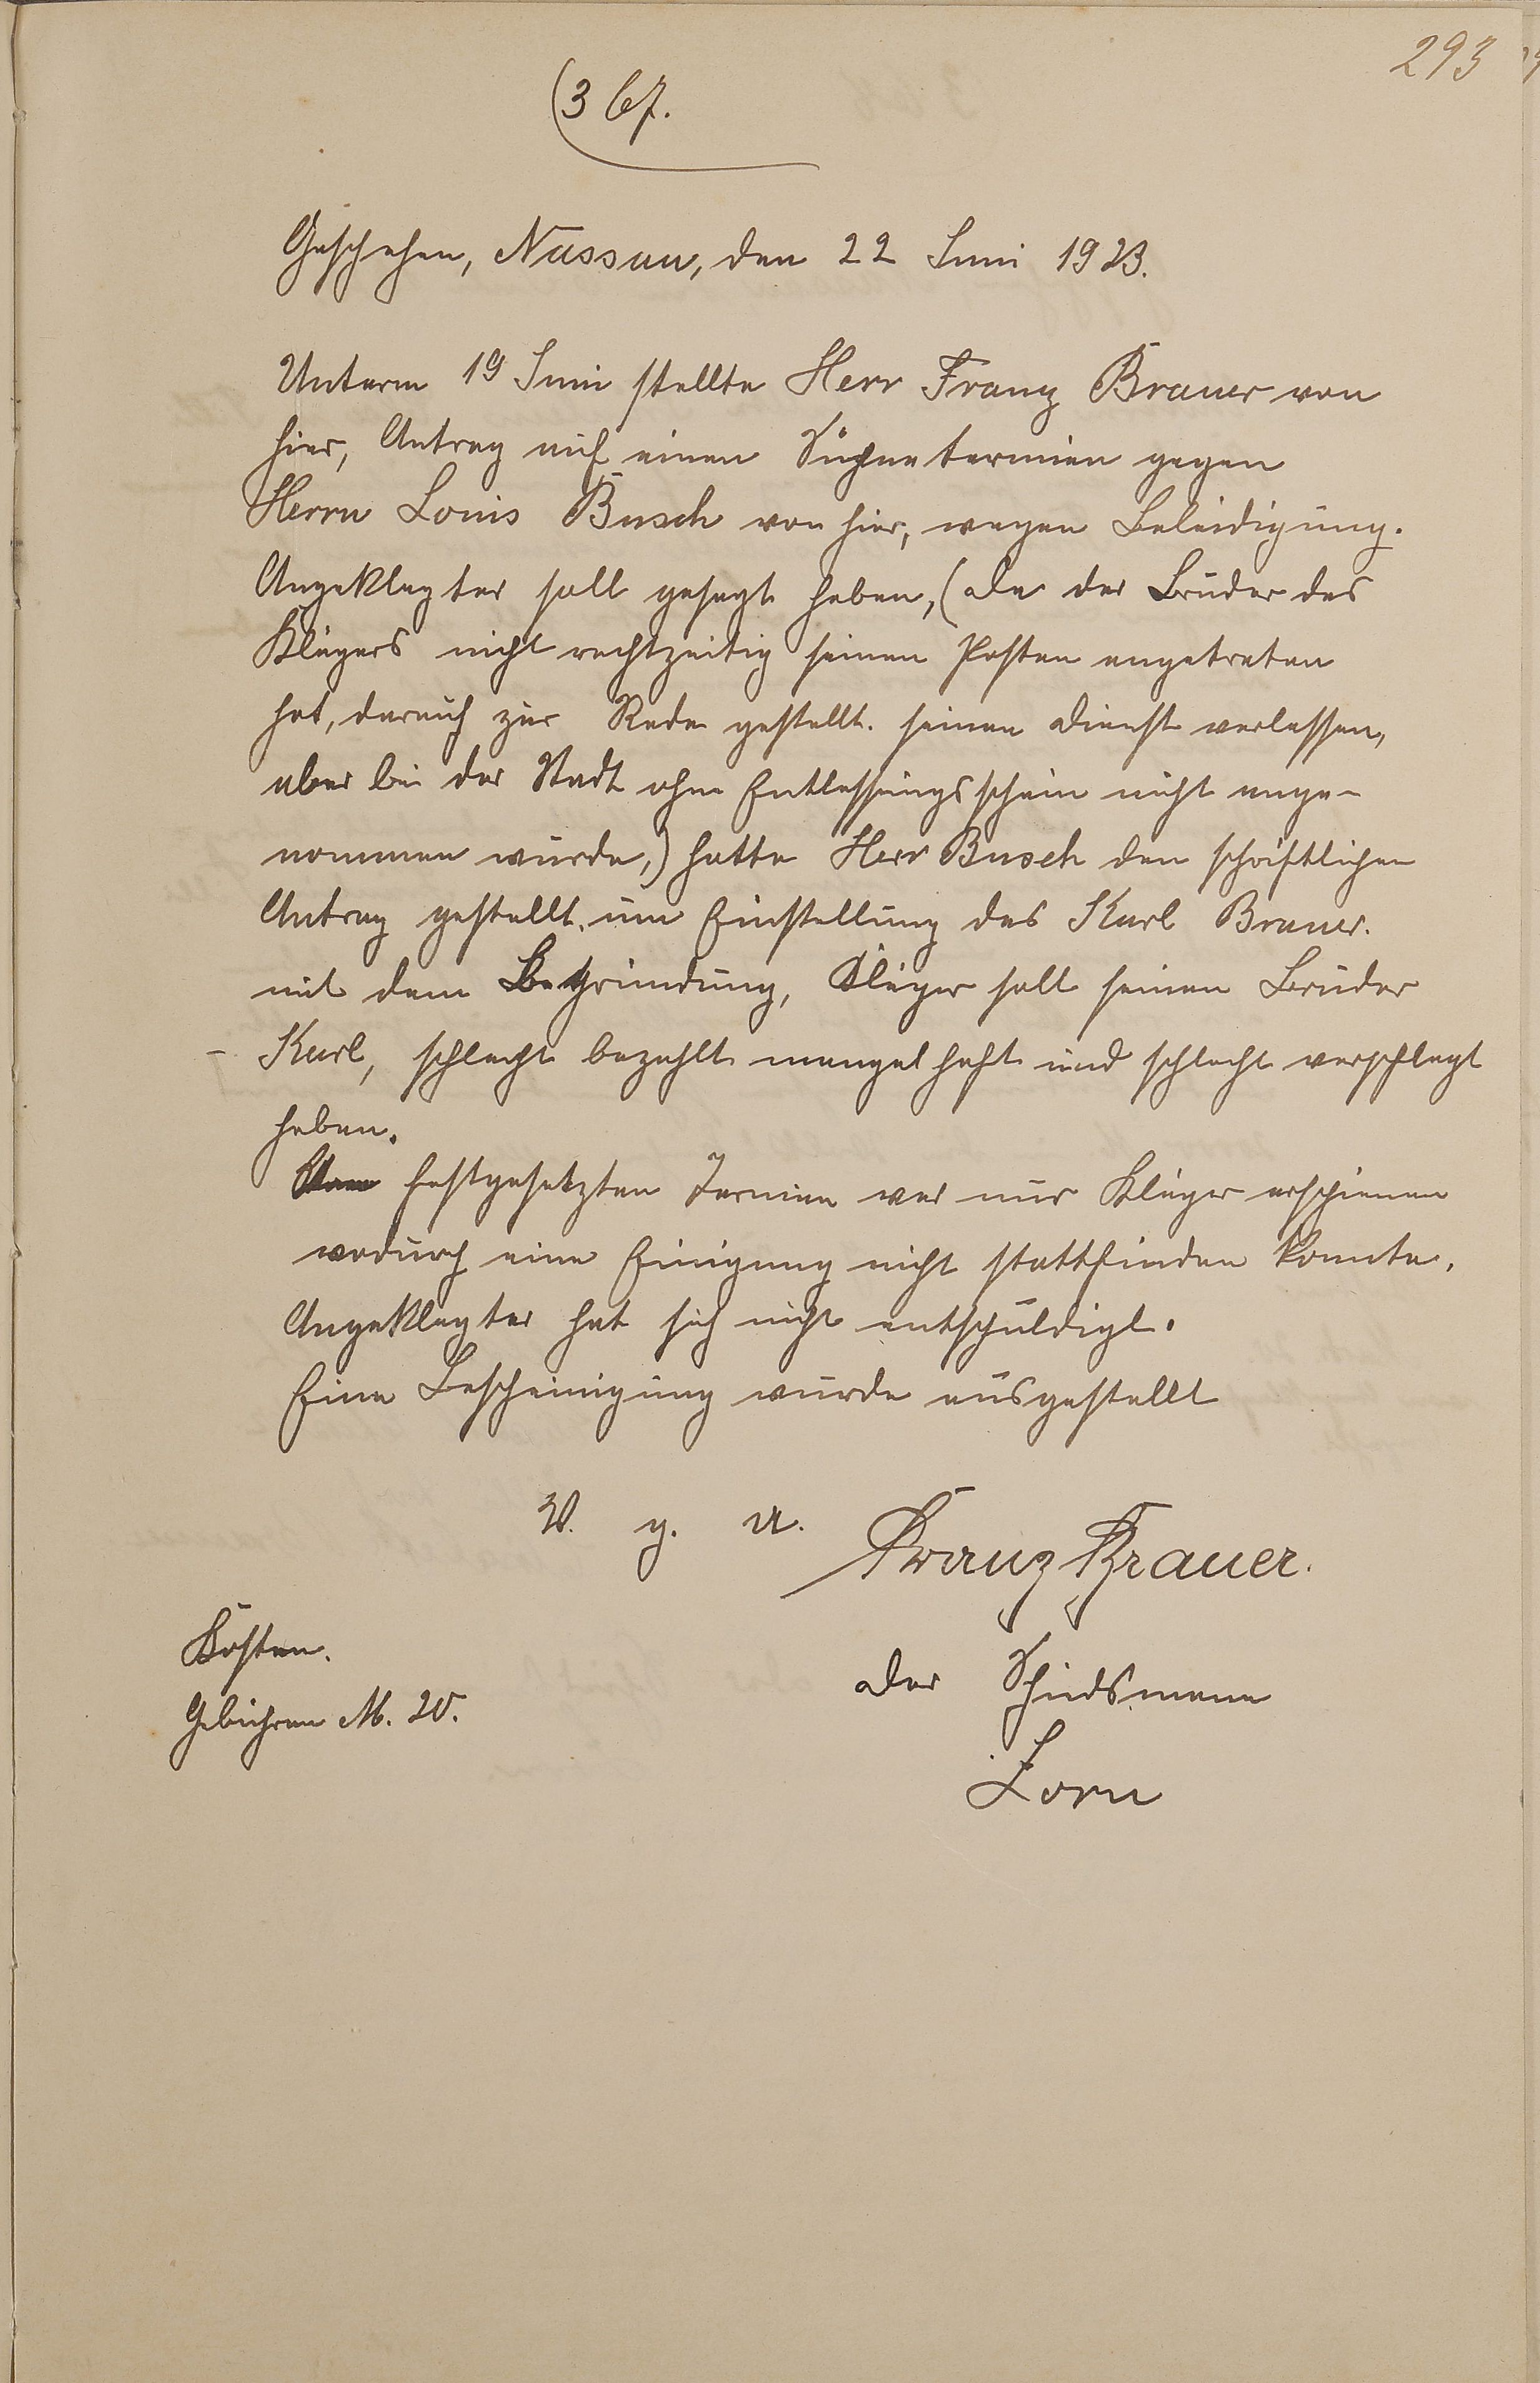 293
(3 67.
Geschehen, Nassau, den 22 Juni 1923.
Unterm 19 Juni stellte Herr Franz Brauer von
hier, Antrag auf einen Sühnetermien gegen
Herrn Louis Busch von hier, wegen Beleidigung.
Angeklagter soll gesagt haben, (da der Bruder des
Klägers nicht rechtzeitig seinen Posten angetreten
hat, darauf zur Rede gestellt. seinen Dienst verlassen,
aber bei der Stadt ohne Entlassungsschein nicht ange-
nommen wurde,) hatte Herr Busch den schriftlichen
Antrag gestellt, um Einstellung des Karl Brauer.
mit dem Begründung, Kläger soll seinen Bruder
Karl, schlecht bezahlt mangelhaft und schlecht verpflegt
haben.
festgesetzten Termien war nur Kläger erschienen
wodurch eine Einigung nicht stattfinden konnte.
Angeklagter hat sich nicht entschuldigt.
Eine Bescheinigung wurde ausgestellt
V. g. u. Franz Brauer.
Kosten.
Der Schiedsmann
Gebühren M. 20.
Zorn